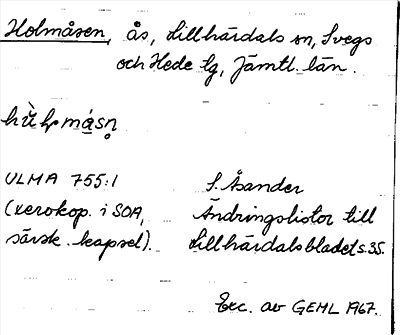 Holmåsen, ås, Lillhärdals sn, Svegs
och Hede tg, Jämtl. län.
ULMA 755:1
S. Åsander
(xerokop. i SOA,
Ändringslistor till
särsk. kapsel).
Lillhärdalsbladet s. 35.
Exc. av GEML 1967.